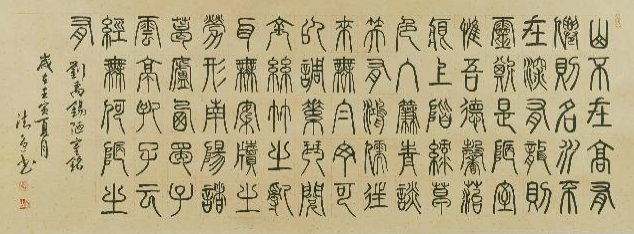 山不在高有
僊則名水不
在深有龍則
靈斯是陋室
惟吾德馨苔
痕上階綠草
色入簾青談
笑有鴻儒往
來無白丁可
以調素琴閱
金絲竹之亂
耳無案牘之
勞形南陽諸
葛廬西蜀子
雲亭孔子云
經無何陋之
有
劉禹錫陋室銘
歲在壬寅夏月
書